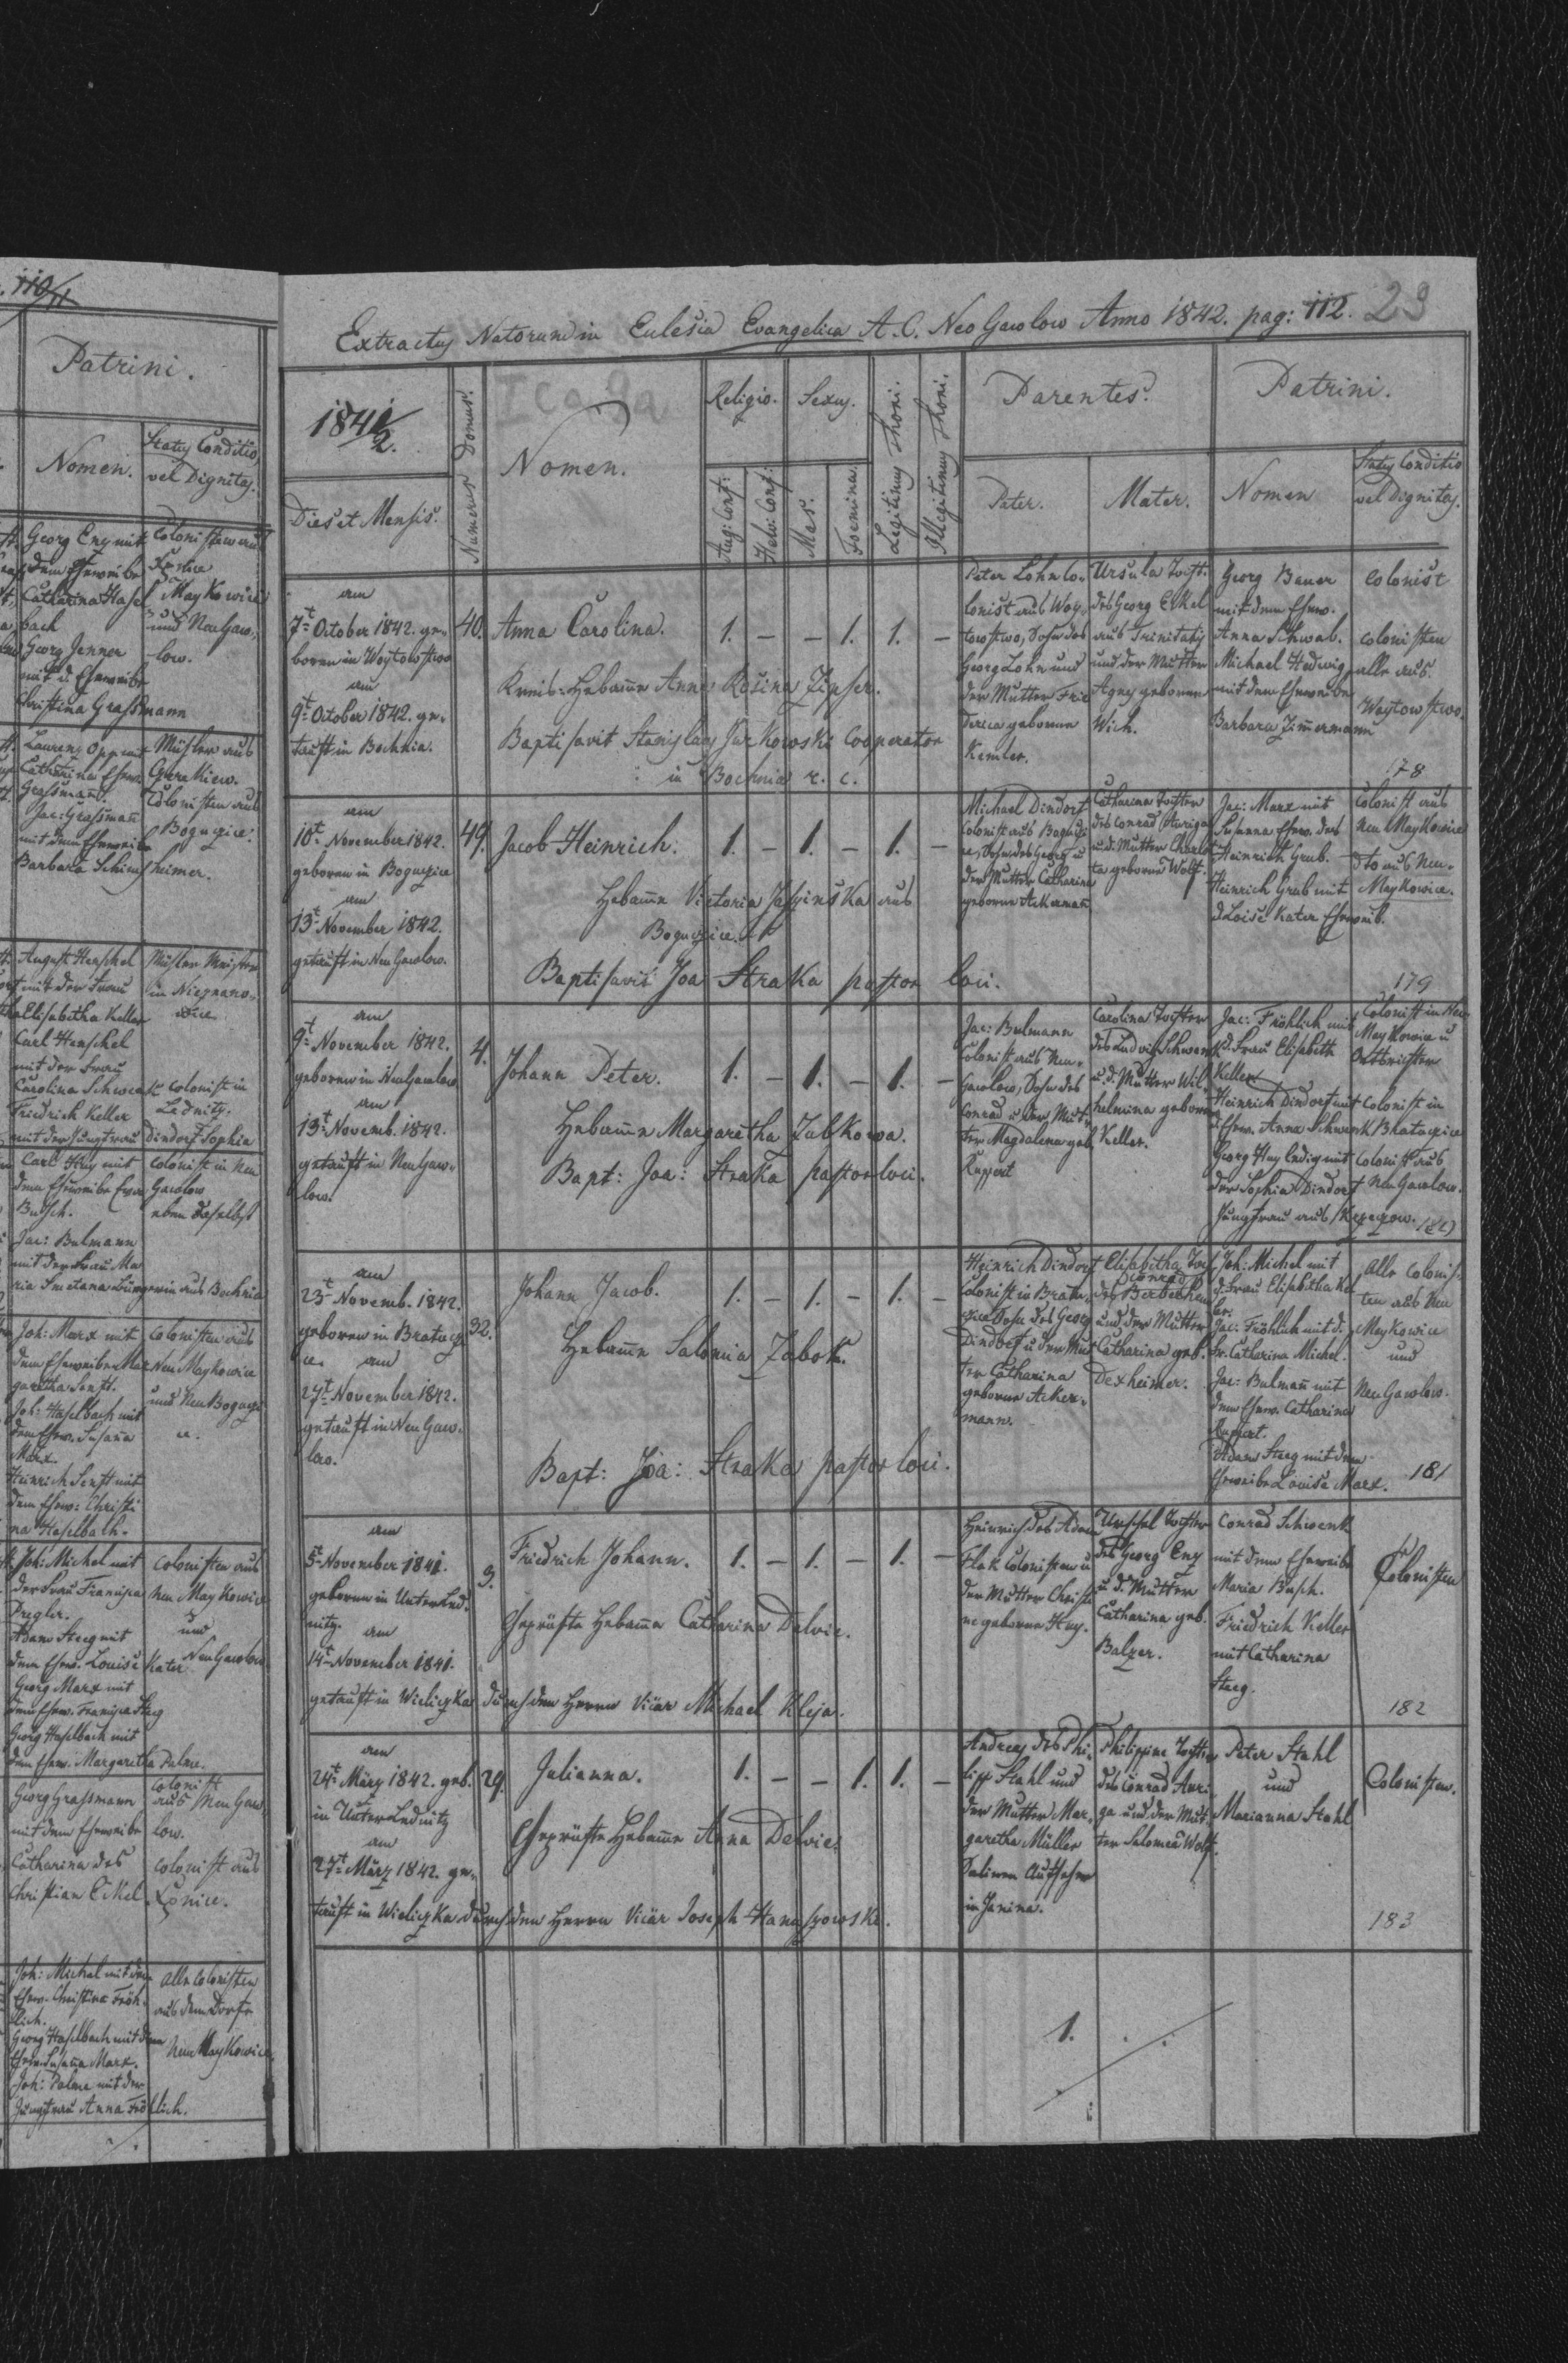 110/11
Patrini.
Nomen.
Status Conditio,
vel Dignitas.
Georg Enz mit
dem Eheweibe
Catharina Hasel
bach
Georg Jenner
mit d. Eheweibe
Christina Grassmann
Colonisten aus
MayKowice
und NeuGaw,,
low.
Lorenz Opp mit
Catharina Ehew.
Grassmann.
Jac: Grassmann
mit dem Eheweibe
Barbara Schinsheimer.
Müller aus
Colonisten aus
Bogucice.
August Henschel
mit der Frau
Elisabetha Keller
Carl Henschel
mit der Frau
Carolina Schwenk
Friedrich Keller
mit der Jungfrau Dindorf Sophia
Müller Meister
in Niegnano-
wice
Colonist in
Lednitz.
Carl Huy mit
dem Eheweibe Eva
Busch.
Jac: Bulmann
mit der Frau Ma
ria Smetana Bürgerin aus Bochnia
Colonist in Neu
Gawlow
eben daselbst
Joh: Marx mit
dem Eheweibe Mar
garetha Senft.
Joh: Haselbach mit
dem Ehew. Susanna
Marx.
Heinrich Senft mit
dem Ehew: Christi
na Haselbach.
Colonisten aus
Neu Maykowice
und Neu Boguczi
ce.
Joh: Michel mit
der Frau Francisca
Dregler.
Adam Steeg mit
dem Ehew. Louise Kater
Georg Marx mit
dem Ehew. Francisca Steeg
Georg Haselbach mit
dem Ehew. Margaretha Palme.
Colonisten aus
Neu MayKowice
und
NeuGawlow
Georg Grassmann
mit dem Eheweibe
Catharina des
Christian Eikel
Colonist
aus Neu Gaw
low.
Colonist aus
Łonice.
Joh: Michel mit dem
Ehew. Christina Fröh,,
lich.
Georg Haselbach mit dem
Ehew. Susanna Marx.
Joh: Palme mit der
Jungfrau Anna Fröhlich.
Alle Colonisten
aus dem Dorfe
Neu MayKowice.
Extractus Natorum in Eclesia Evangelica A. C. Neo Gawlow Anno 1842. pag: 112. 29
1841/2.
Dies et Mensis.
Numerus Domus.
Nomen.
Religio.
Augs: Conf:
Helv: Conf:
Sexus.
Mas.
Foemina.
Legitimus Thori.
Illegitimus Thori.
Parentes.
Pater.
Mater.
Patrini.
Nomen
Status Conditio
vel Dignitas.
am
7t October 1842. ge,,
boren in Woytowstwo
am
9t October 1842. ge,,
tauft in Bochnia.
40.
Anna Carolina.
1. – – 1. 1. –
Kreis-Hebamme Anna Rosina Zipser.
Baptisavit Stanislaus Jurkowski Cooperator
in Bochnia r. c.
Peter Lohn Co,,
lonist aus Woy,,
towstwo, Sohn des
Georg Lohn und
der Mutter Frie
derica geborene
Kemler.
Ursula Tocht.
des Georg Eikel
aus Trinitatis
und der Mutter
Agnes geborene
Wich.
Georg Bauer
mit dem Ehew.
Anna Schwab.
Michael Hedwig
mit dem Eheweibe
Barbara Zimmermann
Colonist
Colonisten
alle aus
Woytowstwo.
178
am
10t November 1842.
geboren in Boguczice
am
13t November 1842.
getauft in Neu Gawlow.
49.
Jacob Heinrich.
1. – 1. – 1. –
Hebamme Victoria Jasinska aus
Boguczice.
Baptisavit Joa Straka pastor loci.
Michael Dindorf
Colonist aus Boguczi
ce, Sohn des Georg u
der Mutter Catharina
geborene Ackermann
Catharina Tochter
des Conrad Auriga
u d. Mutter Charlot
ta geborene Wolf.
Jac: Marx mit
Susanna Ehew. des
Heinrich Grub.
Heinrich Grub mit
d Loise Kater Eheweib.
Colonist aus
Neu MayKowice
dto aus Neu-
MayKowice.
179
am
9t November 1842.
geboren in NeuGawlow
am
13t Novemb. 1842.
getauft in Neu Gaw,,
low.
4.
Johann Peter.
1. – 1. – 1. –
Hebamme Margaretha Zabkowa.
Bapt: Joa: Straka pastor loci.
Jac: Bulmann
Colonist aus Neu-
Gawlow, Sohn des
Conrad u der Mut-
ter Magdalena geb.
Ruppert
Carolina Tochter
des Ludvig Schwenk
u. d. Mutter Wil
helmina geborene
Keller.
Jac: Fröhlich mit
d. Frau Elisabeth
Keller
Heinrich Dindorf mit
d. Ehew. Anna Schwenk
Georg Huy ledig mit
der Sophia Dindorf
Jungfrau aus
Colonist in Neu
MayKowice u
Ortsrichter
Colonist in
Bratucice
Colonist aus
Neu Gawlow.
180
am
23t Novemb. 1842.
geboren in Bratucz
ce. am
27t November 1842.
getauft in Neu Gaw-
low.
32.
Johann Jacob.
1. – 1. – 1. –
Hebamme Salomia Zabok.
Bapt: Joa: Straka pastor loci.
Heinrich Dindorf
Colonist in Bratu,,
czice Sohn des Georg
Dindorf u der Mut
ter Catharina
geborene Acker,,
mann.
Elisabetha Toch
Conrad
des Berbecker
und der Mutter
Catharina geb.
Dexheimer.
Joh: Michel mit
d. Frau Elisabetha Kel
ler.
Jac: Fröhlich mit d.
Fr. Catharina Michel.
Jac: Bulmann mit
dem Ehew. Catharina
Ruppert.
Adam Steeg mit dem
Eheweibe Louise Marx.
Alle Colonis-
ten aus Neu
MayKowice
und
Neu Gawlow.
181
am
5t November 1841.
geboren in Unterled,,
nitz. am
14t November 1841.
getauft in Wieliczka durch den Herrn Vicär Michael Kleja.
3.
Friedrich Johann.
1. – 1. – 1. –
Geprüfte Hebamme Catharina Delvie.
Heinrich des Adam
Flak Colonisten u
der Mutter Christi
ne geborene Huy.
Urschel Tochter
des Georg Enz
u d. Mutter
Catharina geb.
Balzer.
Conrad Schwenk
mit dem Eheweibe
Maria Busch.
Friedrich Keller
mit Catharina
Steeg.
Colonisten
182
am
24t März 1842. geb.
in UnterLednitz
am
27t März 1842. ge,,
tauft in Wieliczka durch den Herrn Vicär Joseph Hanuszowski.
29.
Julianna.
1. – – 1. 1. –
Geprüfte Hebamme Anna Delvie.
Andreas des Phi,,
lipp Stahl und
der Mutter Mar,,
garetha Müller
Salinen Aufseher
in Janina.
Philippine Tochter
des Conrad Auri-
ga und der Mut-
ter Salomea Wolf.
Peter Stahl
und
Marianna Stahl
Colonisten.
183
1.